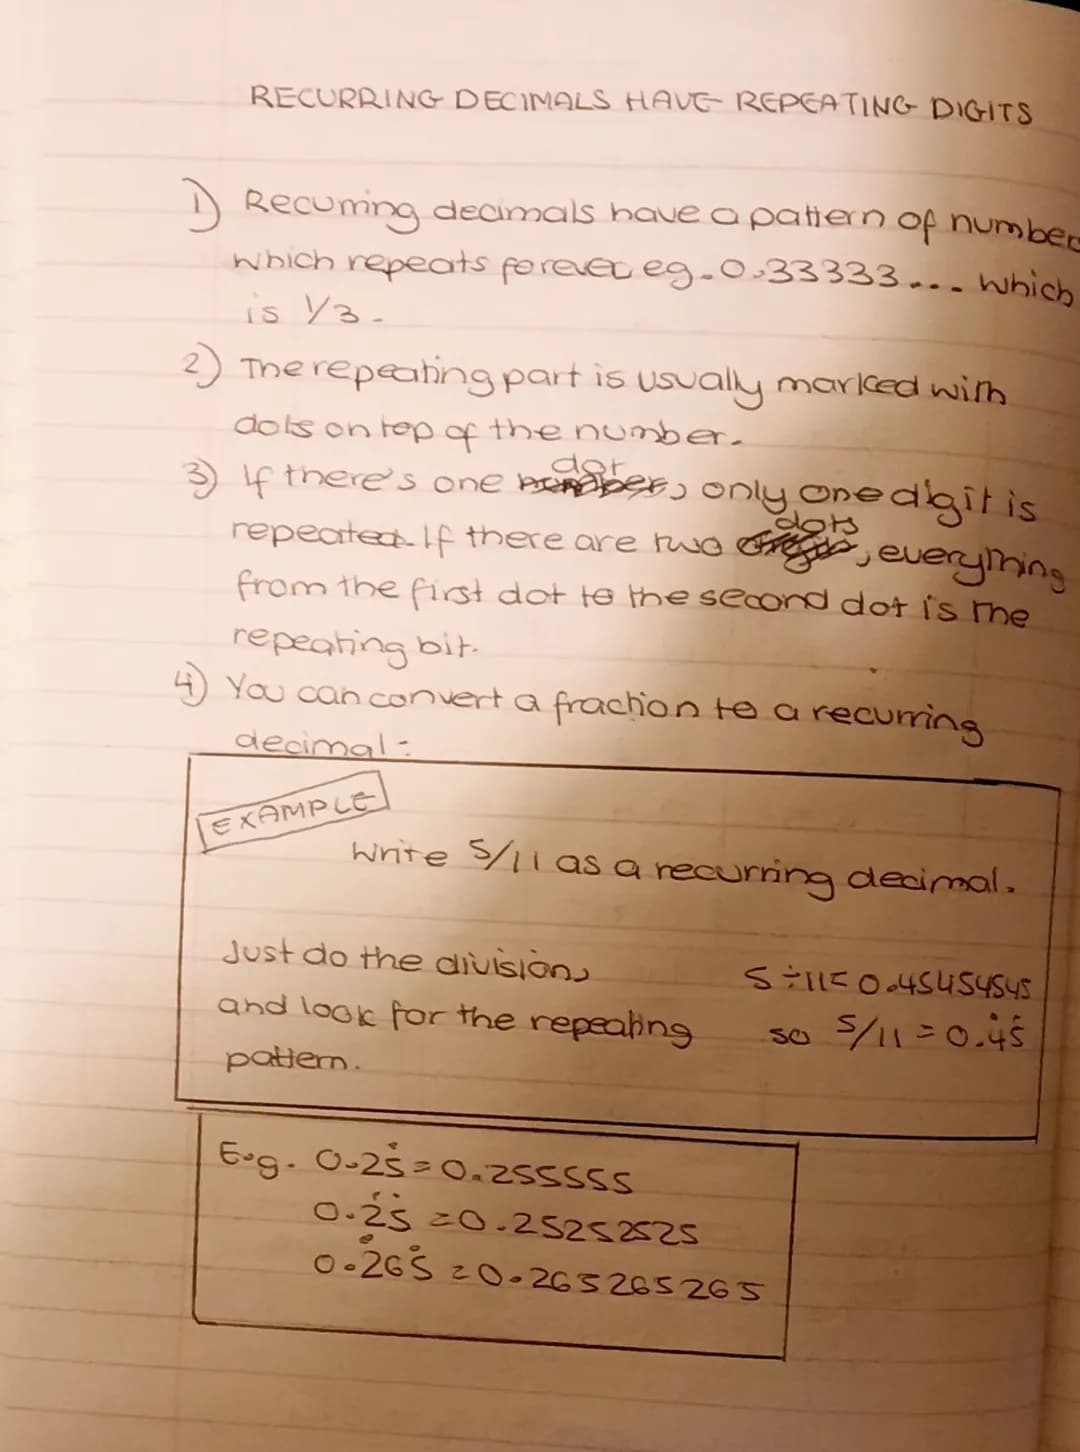 RECURRING DECIMALS HAVE REPEATING DIGITS
1) Recurring decimals have a pattern of number
which repeats forever eg. 0.33333... which
is 1/3.
2) The repeating part is usually marked with
dots on top of the number.
3) If there's one dot, only one digit is
repeated. If there are two dots, everything
from the first dot to the second dot is the
repeating bit.
4) You can convert a fraction to a recurring
decimal:
EXAMPLE
Write 5/11 as a recurring decimal.
Just do the division, 5÷11=0.45454545
and look for the repeating so 5/11=0.4̇5̇
pattern.
E.g. 0.25̇=0.255555
0.2̇5̇=0.25252525
0.2̇65̇=0.265265265